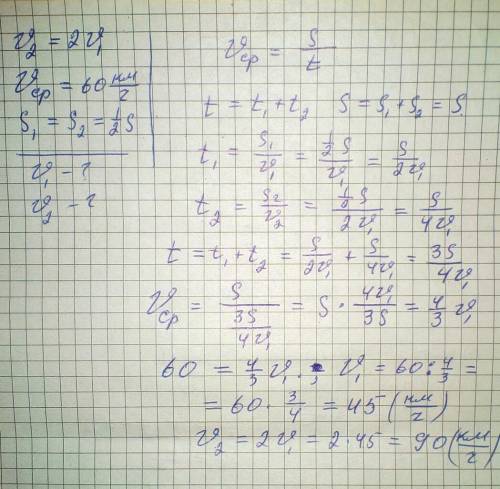 v₂ = 2v₁
vср = 60 км/ч
S₁ = S₂ = ½S
v₁ - ?
v₂ - ?
vср = S/t
t = t₁ + t₂ S = S₁ + S₂ = S.
t₁ = S₁/v₁ = ½S/v₁ = S/2v₁
t₂ = S₂/v₂ = ½S/2v₁ = S/4v₁
t = t₁ + t₂ = S/2v₁ + S/4v₁ = 3S/4v₁
vср = S/(3S/4v₁) = S · 4v₁/3S = 4/3 v₁
60 = 4/3 v₁ ; v₁ = 60 : 4/3 =
= 60 · 3/4 = 45 (км/ч)
v₂ = 2v₁ = 2·45 = 90 (км/ч)